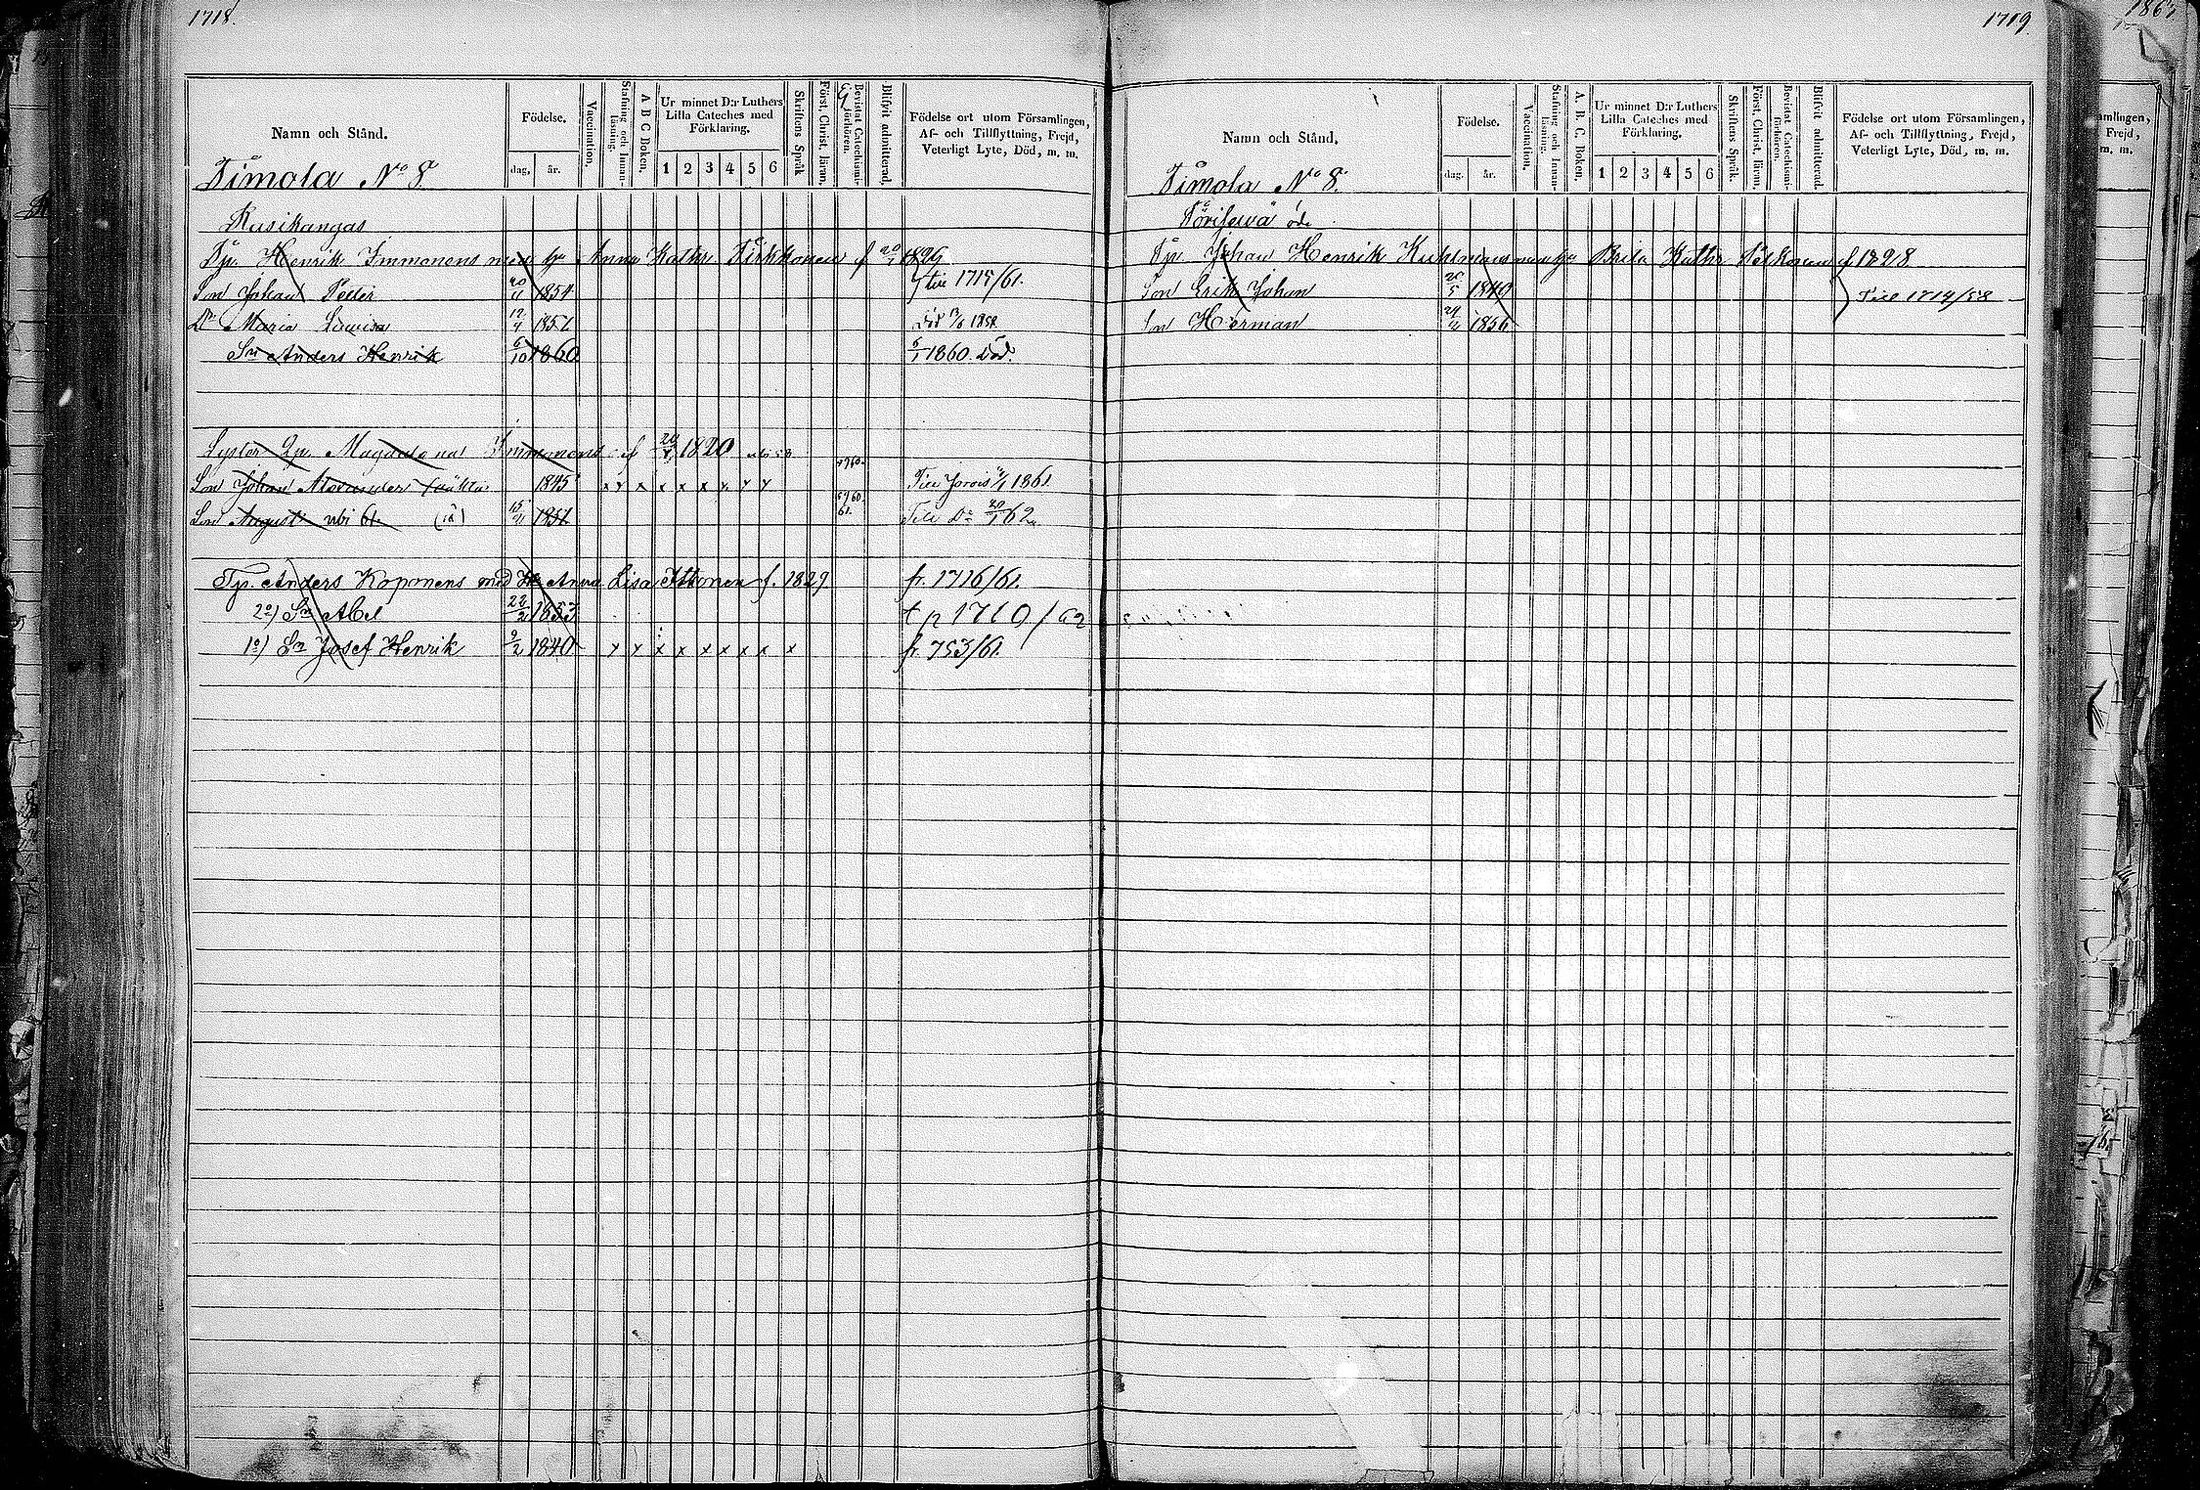 1718.
Namn och Stånd.
Födelse.
dag,
år.
Vaccination.
Stafning och Innanläsning.
A B C Boken.
Ur minnet D:r Luthers Lilla Cateches med Förklaring.
1 2 3 4 5 6
Skriftens Språk
Först. Christ. läran.
Bevistat Catechismiförhören.
Blifvit admitterad.
Födelse ort utom Församlingen,
Af- och Tillflyttning, Frejd,
Veterligt Lyte, Död, m. m.
Timola No 8
Rusikangas
Henrik Immonens Anna Kathr. f 1826
Son Johan Petter 20/11 1854 1715/61.
Dr Maria Lovisa 12/4 1857 Död 1858.
Sn Anders Henrik 6/10 1860 1860. Död.
Syster Magdalena Immonens f 1820
Son Johan Alexander 1845 x x x x x x x x 1960. Till Jorois 1861
Son August ubi 61. 15/11 1851 5960 61. Till Do 62
Tp. Anders Koponens med Anna Lisa Ittonen f. 1829 fr. 1716/61.
2o) Sn Abel 22/2 1853 t p 1710/62
1o) Sn Josef Henrik 9/2 1840 x x x x x x x x x fr. 753/61.
1719
Namn och Stånd.
Födelse.
dag.
år.
Vaccination.
Stafning och Innanläsning.
A. B. C. Boken.
Ur minnet D:r Luthers Lilla Cateches med Förklaring.
1 2 3 4 5 6
Skriftens Språk.
Först. Christ. läran.
Bevistat Catechismiförhören.
Blifvit admitterad.
Födelse ort utom Församlingen,
Af- och Tillflyttning, Frejd,
Veterligt Lyte, Död, m. m.
Timola No 8.
öde
Johan Henrik Brita Kathr f 1828
Son Erik Johan 1840 Till 1714/58
Son Herman 1856
mlingen,
Frejd,
m. m.